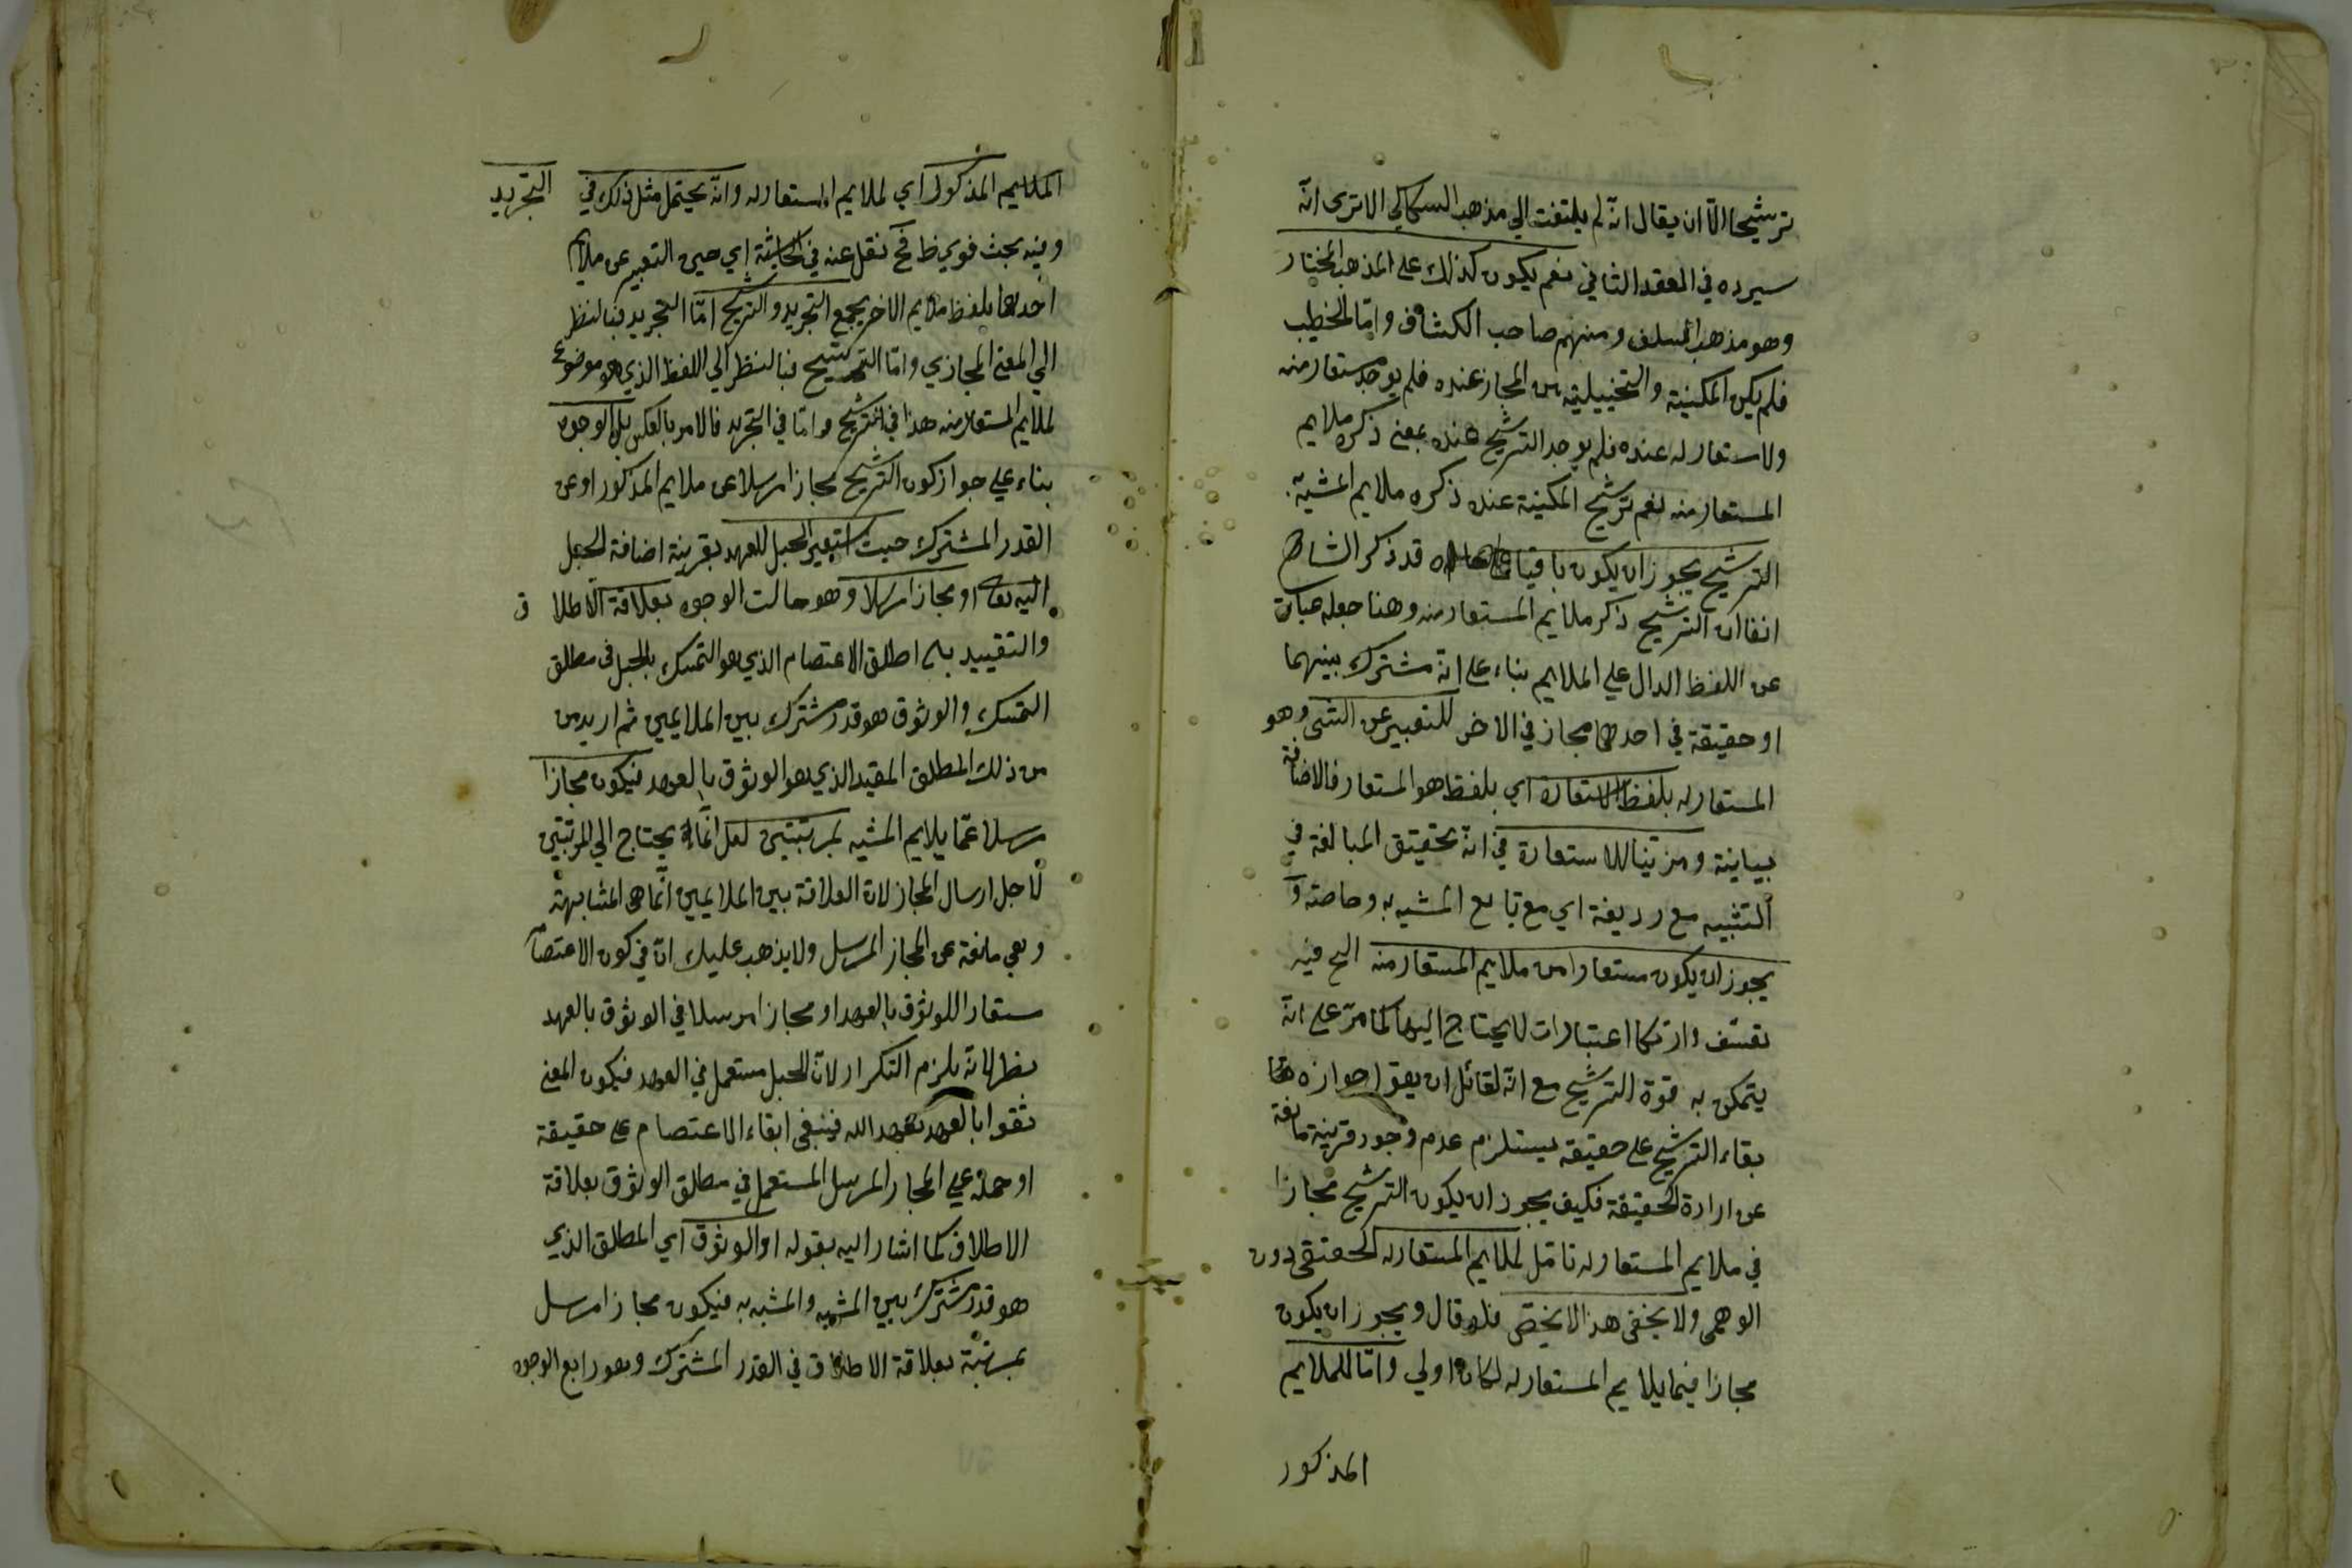 ترشيحا الا ان يقال انه لم يلتفت الي مذهب السكاكي الا ترى انه
سيرده في العقد الثاني نعم يكون كذلك على المذهب المختار
وهو مذهب السلف ومنهم صاحب الكشاف واما الخطيب
فلم يكن المكنية والتخييلية من المجاز عنده فلم يوجد مستعار منه
ولا مستعار له عنده فلم يوجد الترشيح عنده بمعنى ذكره ملايم
المستعار منه نعم ترشيح المكنية عنده ذكره ملايم المشبه
الترشيح يجوز ان يكون باقيا قد ذكر الشارح
انفا ان الترشيح ذكر ملايم المستعار منه وهنا جعله عبارة
عن اللفظ الدال علي الملايم بناء على انه مشترك بينهما
او حقيقة في احدهما مجاز في الاخر للتعبير عن الشئ وهو
المستعار له بلفظ الاستعارة اي بلفظ هو المستعار فالاضافة
بيانية ومزتينا للاستعارة في انه تحقيق المبالغة في
التشبيه مع رديفة اي مع تابع المشبه به وخاصته و
يجوز ان يكون مستعارا من ملايم المستعار منه الخ فيه
تعسف وارتكا اعتبارات لا يحتاج اليها كما مر على انه
يتمكن به قوة الترشيح مع انه لقائل ان يقو جوازه
بقاء الترشيح على حقيقة يستلزم عدم وجود قرينة مانعة
عن ارادة الحقيقة فكيف يجوز ان يكون الترشيح مجازا
في ملايم المستعار له تامل لملايم المستعار له الحقيقى دون
الوهمى ولا يخفى هذا لا يختص فلو قال ويجوز ان يكون
مجازا فيما يلايم المستعار له لكان اولي واما للملايم
المذكور
الملايم المذكور اي لملايم المستعار له وانه يحتمل مثل ذلك في التجريد
وفيه بحث فوي ظ فح نقل عنه في الحاشية اي حين التعبير عن ملايم
احدهما بلفظ ملايم الاخر يجمع التجريد والترشيح اما التجريد فبالنظر
الي المعنى المجازي واما الترشيح فبالنظر الي اللفظ الذي هو موضوع
لملايم المستعار منه هذا في الترشيح واما في التجريد فالامر بالعكس الوجوه
بناء علي جواز كون الترشيح مجازا مرسلا عن ملايم المذكور او عن
القدر المشترك حيث استعير الحبل للعهد بقرينة اضافة الحبل
اليه تعا او مجازا مرسلا وهو ثالث الوجوه بعلاقة الاطلا ق
والتقييد بان اطلق الاعتصام الذي هو التمسك بالحبل في مطلق
التمسك والوثوق هو قدر مشترك بين الملايمين ثم اريد من
من ذلك المطلق المقيد الذي هو الوثوق بالعهد فيكون مجازا
مرسلا عما يلايم المشبه بمرتبتين لعل انما يحتاج الي المرتبتين
لاجل ارسال المجاز لان العلاقة بين الملايمين انما هى المشابهة
وهي مانعة عن المجاز المرسل ولا يذهب عليك ان في كون الاعتصام
مستعارا للوثوق بالعهد او مجازا مرسلا في الوثوق بالعهد
نظرا لانه يلزم التكرار لان الحبل مستعمل في العهد فيكون المعنى
ثقوا بالعهد بعهد الله فينبغى ابقاء الاعتصام على حقيقة
او حمله علي المجاز المرسل المستعمل في مطلق الوثوق بعلاقة
الاطلاق كما اشار اليه بقوله او الوثوق اي المطلق الذي
هو قدر مشترك بين المشبه والمشبه به فيكون مجازا مرسل
بمرتبة بعلاقة الاطلاق في القدر المشترك وهو رابع الوجوه